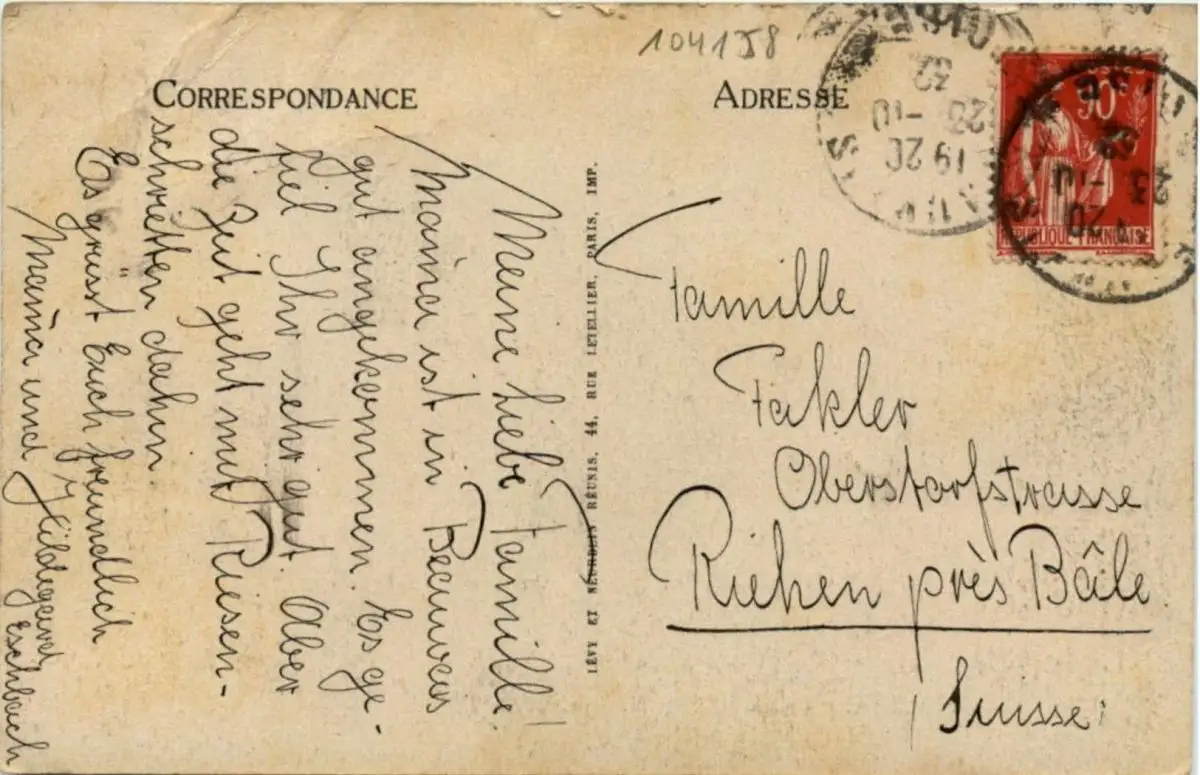 1041J8
CORRESPONDANCE
ADRESSE
Meine liebe Familie!
Mama ist in Beauvais
gut angekommen. Es ge-
fiel Ihr sehr gut. Aber
die Zeit geht mit Riesen-
schritten dahin.
Es grüsst Euch freundlich
Mama und Hildegard
Eschbach
LÉVY ET NEURDEIN RÉUNIS, 44, RUE LETELLIER, PARIS, IMP.
Famille
Fakler
Oberstorfstrasse
Riehen près Bâle
(Suisse)
POSTES
90c
REPUBLIQUE FRANÇAISE
OISE
19 20
23 -10
32
OISE
19 20
23 -10
32